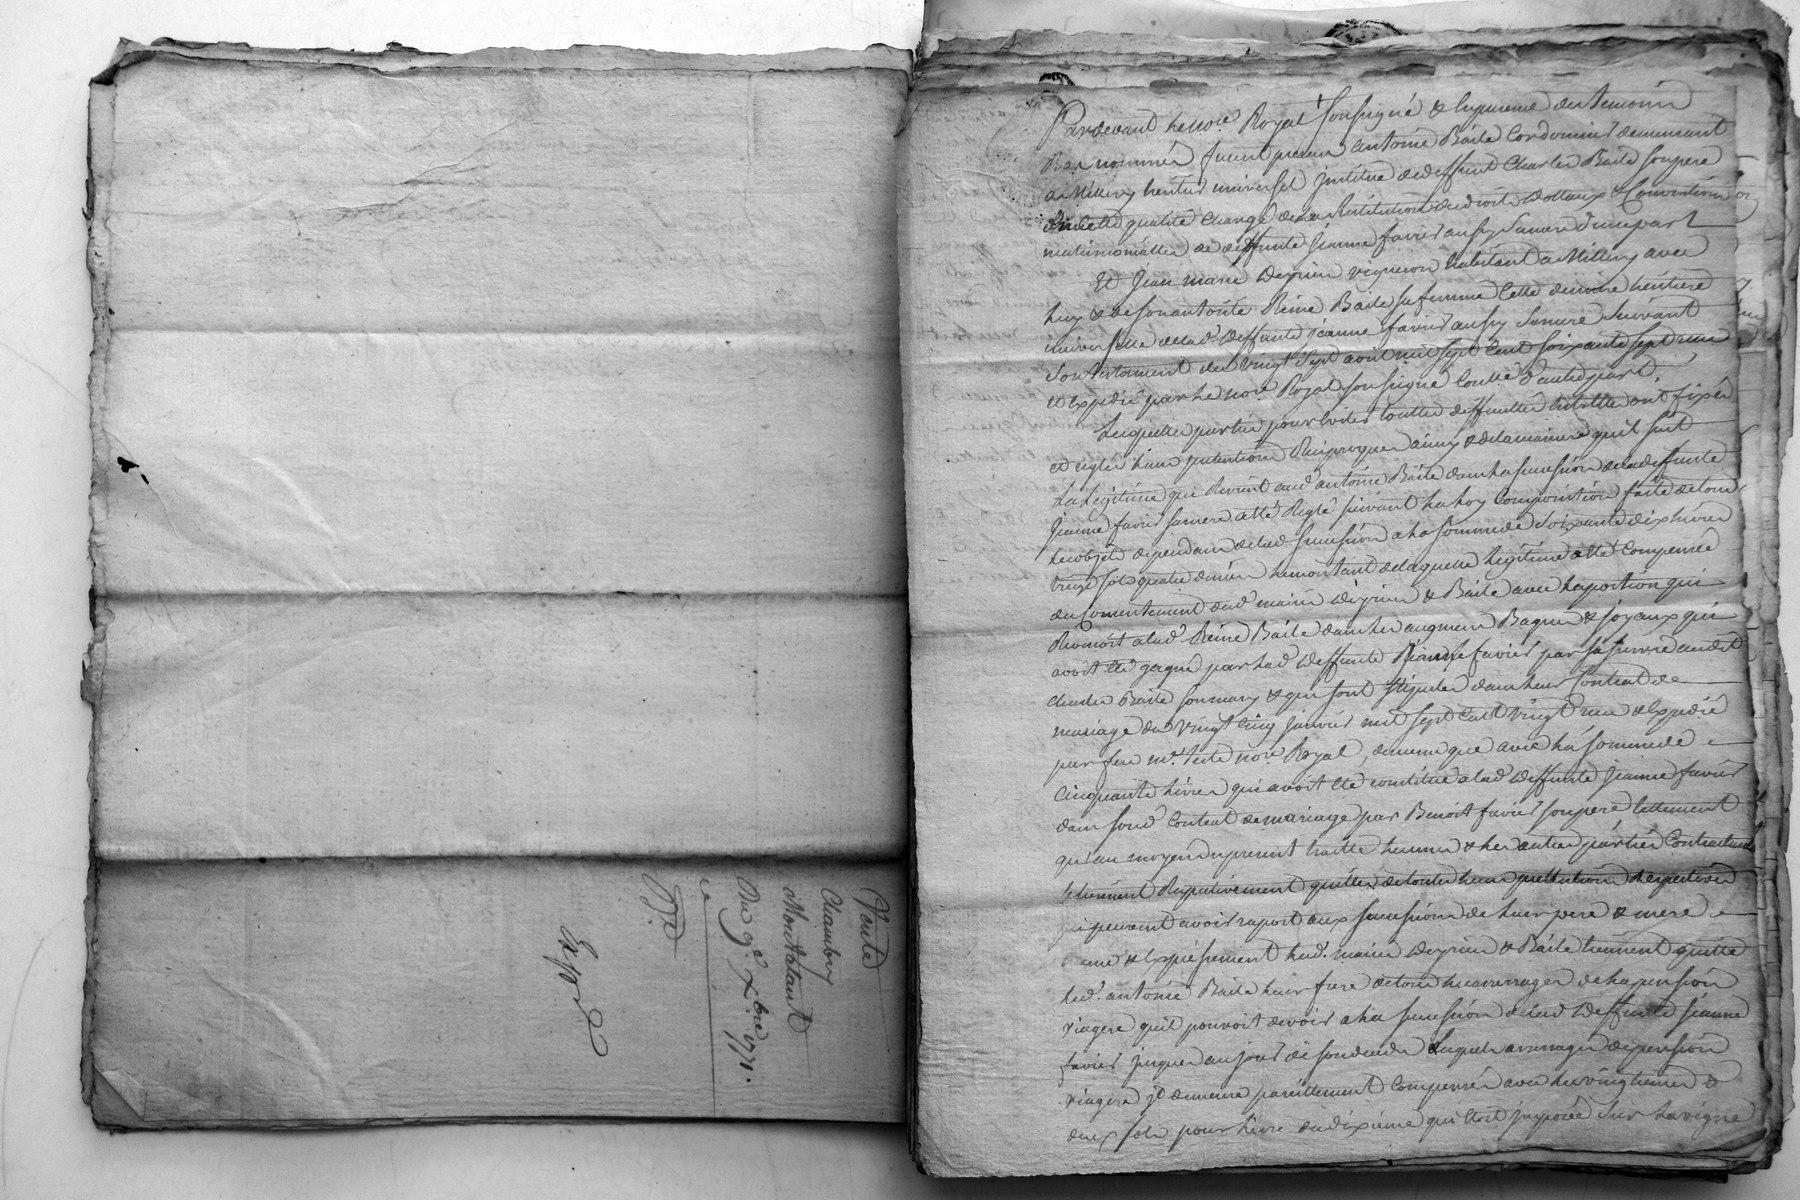 Vente
Chambry
Montalant
Du 9e. xbre 1771.
Expéd
Pardevant le nore. Royal soussigné & en presence des temoins
Bas nommés furent presens antoine Baile Cordonnier demeurant
a Millery heritier universel institué de deffunt Charles Baile son pere
en cette qualité chargé de la restitution des droits dottaux & Conventions
matrimonialles de deffunte Jeanne favier aussy sa mere d'une part
Et Jean marie Deprieu vigneron habitant a Millery avec
luy & de son autorité Reine Baile sa femme cette derniere heritiere
universelle de lad. deffunte jeanne favier aussy sa mere suivant
son testament du vingt sept avril mil sept cent soixante sept receu
et expedié par le nore. Royal soussigné Contté d'autre part,
Lesquelles parties pour eviter touttes difficultés entr'elles ont fixés
et reglés leurs pretentions Reciproques ainsy & de la maniere qu'il suit
La legitime qui Revient aud. antoine Baile dans la succession de la deffunte
Jeanne favier sa mere a été Reglé suivant la loy composition faite de tous
les objets dependans de lad. succession a la somme de soixante dix livres
treize sols quatre deniers le montant de laquelle legitime a été Compensée
du consentement desd. mariés Deprieu & Baile avec la portion qui
Revenoit a lad. Reine Baile dans les augmens Bagues & joyaux qui
avoit été gagné par lad. deffunte Jeanne favier par sa survie audit
Charles Baile son mary & qui sont stipulés dans leur Contrat de
mariage du vingt cinq janvier mil sept cent vingt receu & Expedié
par feu me. nore. Royal, de meme que avec la somme de
Cinquante livres qui avoit été constitué a lad. deffunte Jeanne favier
dans sond. Contrat de mariage par Benoit favier son pere tellement
qu'au moyen du present traitté les uns & les autres parties Contractantes
se tiennent Respectivement quittes de toutes leurs pretentions respectives
qui peuvent avoir raport aux successions de leurs pere & mere
comme & expressement lesd. mariés Deprieu & Baile tiennent quitte
led. antoine Baile leur frere de tous les arrerages de la pension
viagere qu'il pouvoit devoir a la succession de lad. deffunte Jeanne
favier jusques au jour de son deceds lesquels arrerages de pension
viagere demeure pareillement Compensés avec les vingtiemes &
deux sols pour livre du dixieme qui etoit imposée sur la vigne